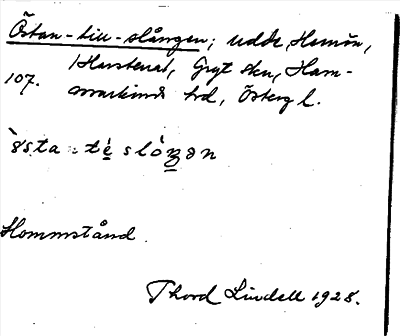 Östan-till-slången; udde, Hemön,
107. Harstena, Gryt skn, Ham-
markinds hd, Östergl.
` østa - té slòŋən
Hommstånd.
Thord Lindell 1928.